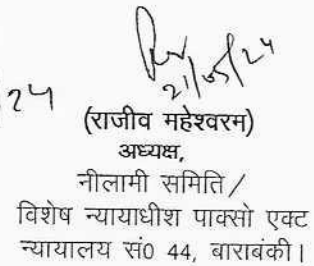 21/05/24
24
(राजीव महेश्वरम)
अध्यक्ष,
नीलामी समिति/
विशेष न्यायाधीश पाक्सो एक्ट
न्यायालय सं0 44, बाराबंकी।